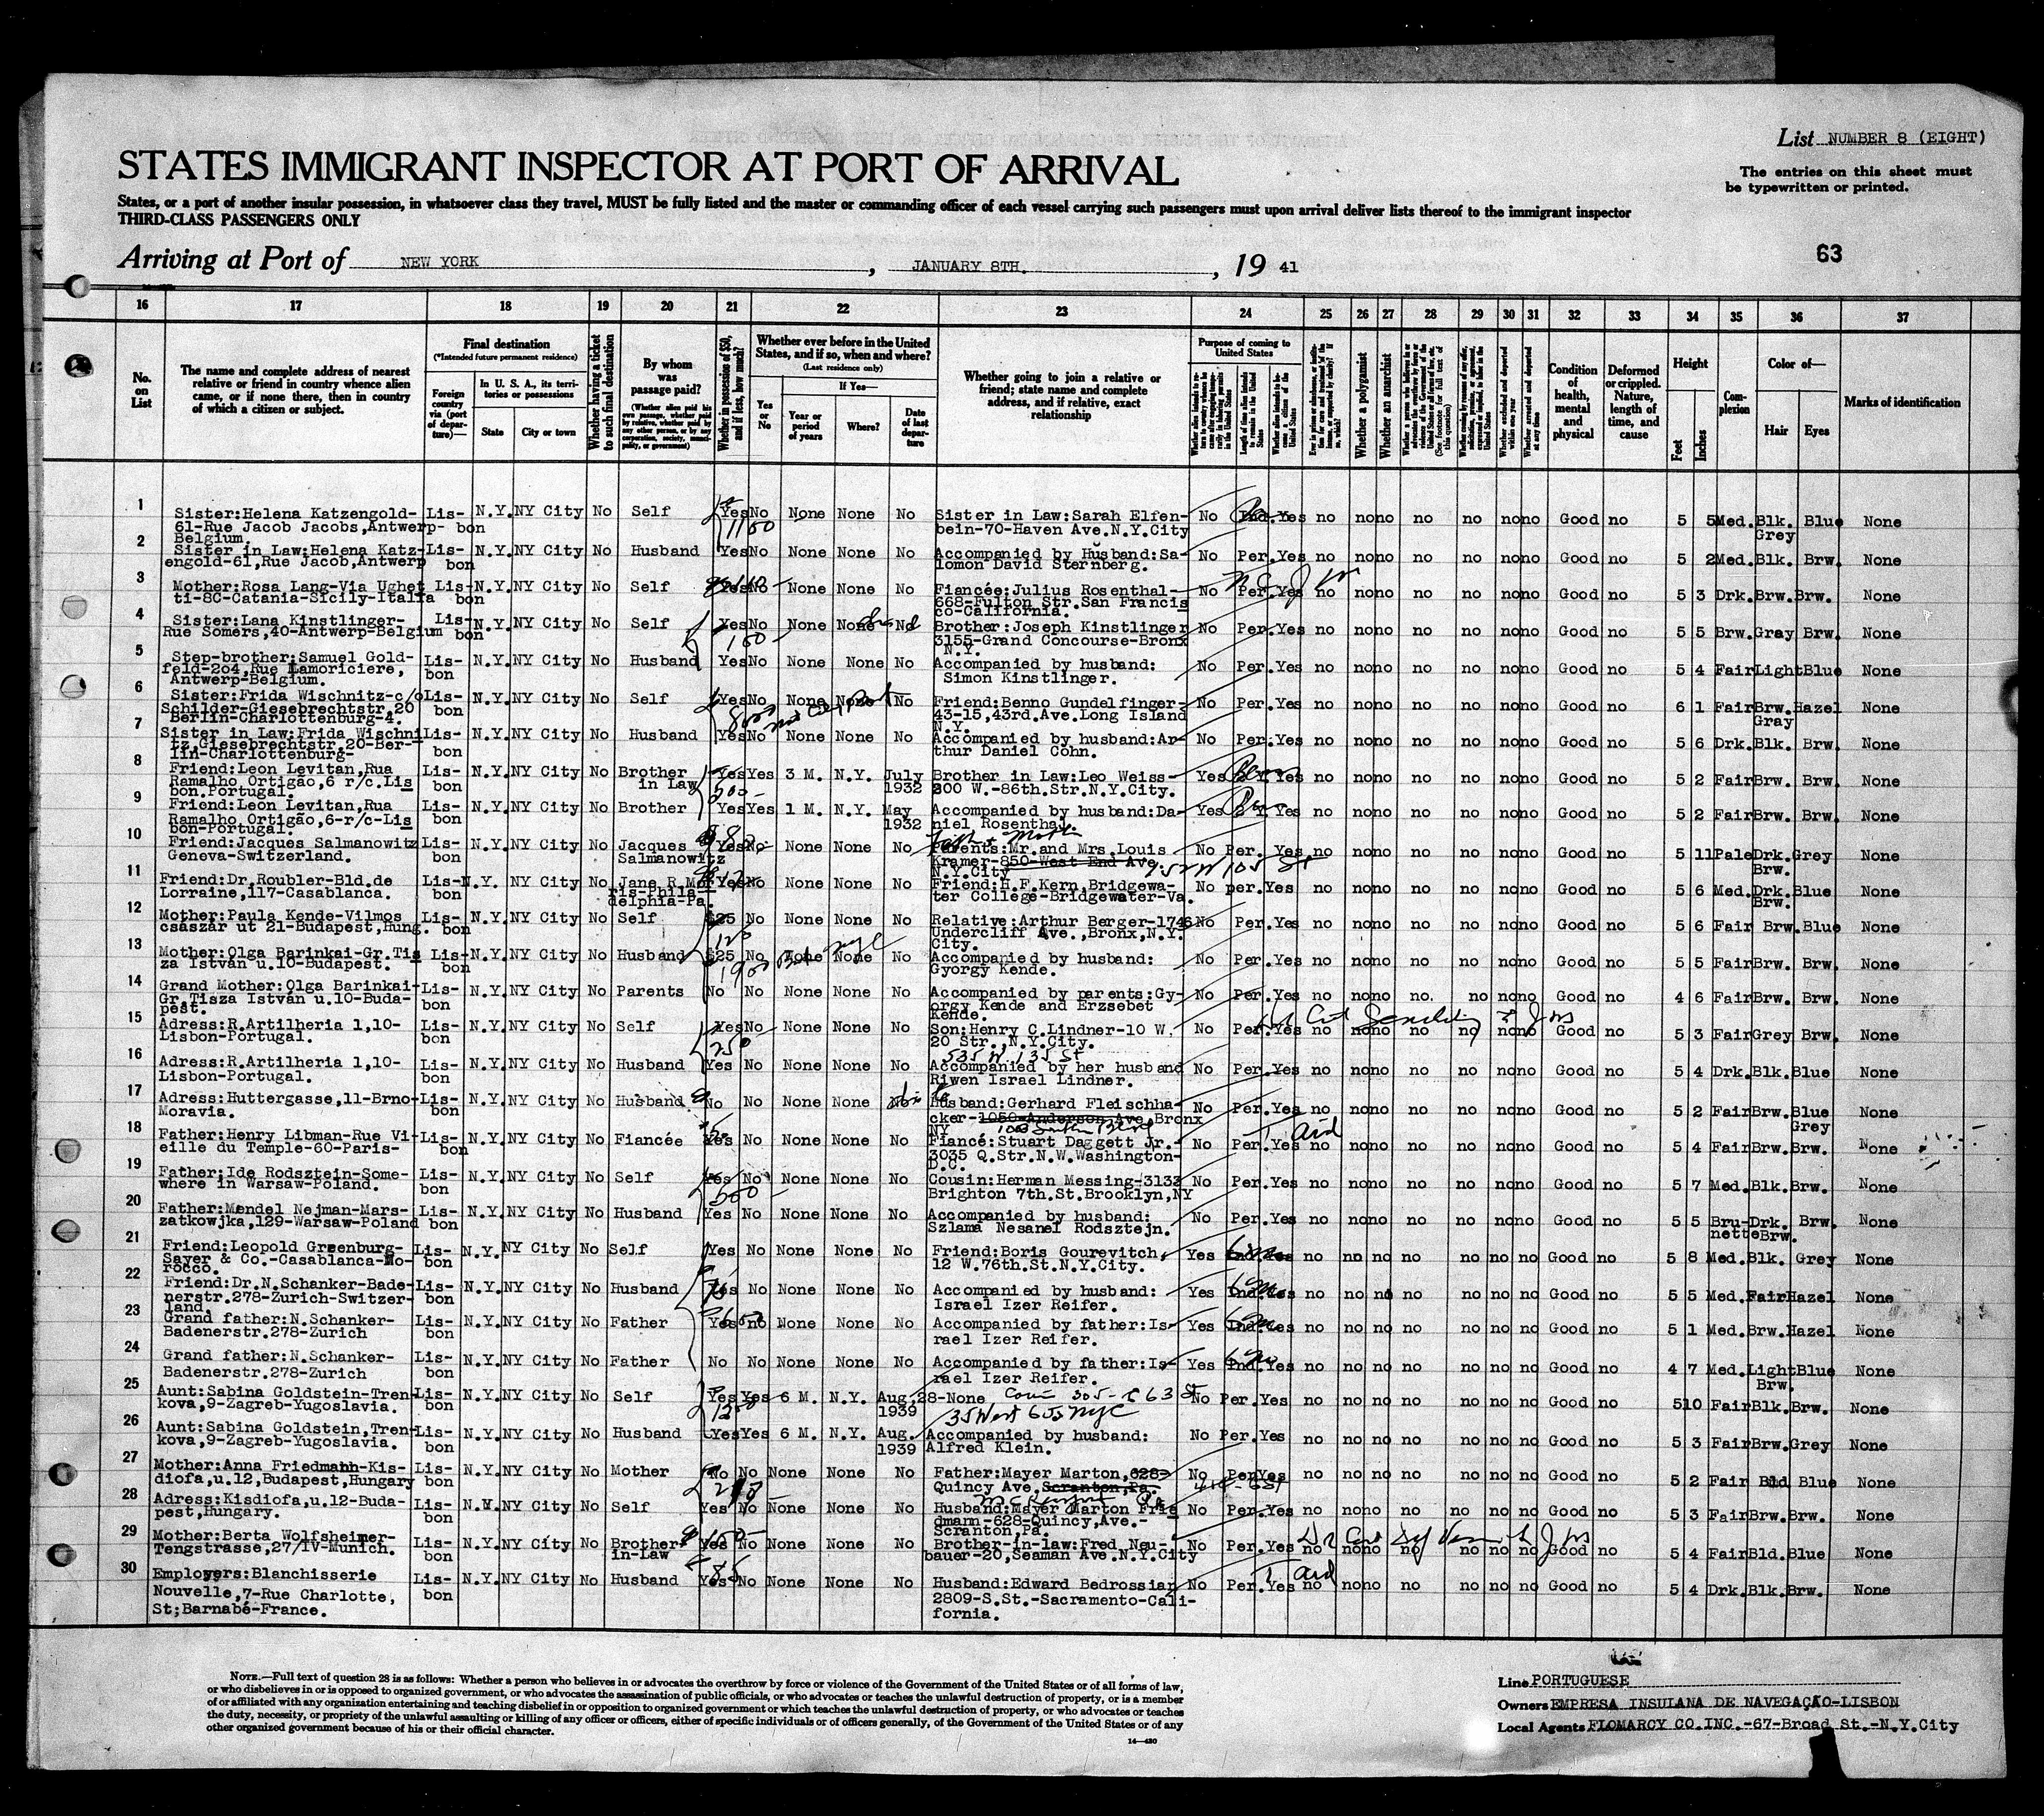 List NUMBER 8 (EIGHT)
STATES IMMIGRANT INSPECTOR AT PORT OF ARRIVAL
The entries on this sheet must
be typewritten or printed.
States, or a port of another insular possession, in whatsoever class they travel, MUST be fully listed and the master or commanding officer of each vessel carrying such passengers must upon arrival deliver lists thereof to the immigrant inspector
THIRD-CLASS PASSENGERS ONLY
63
Arriving at Port of NEW YORK, JANUARY 8TH., 19 41
16 17 18 19 20 21 22 23 24 25 26 27 28 29 30 31 32 33 34 35 36 37
No. on List
The name and complete address of nearest
relative or friend in country whence alien
came, or if none there, then in country
of which a citizen or subject.
Final destination
(*Intended future permanent residence)
Foreign country via (port of departure)—
In U. S. A., its territories or possessions
State
City or town
Whether having a ticket to such final destination
By whom was passage paid?
(Whether alien paid his own passage, whether paid by relative, whether paid by any other person, or by any corporation, society, municipality, or government)
Whether in possession of $50, and if less, how much?
Whether ever before in the United States, and if so, when and where?
(Last residence only)
Yes or No
If Yes—
Year or period of years
Where?
Date of last departure
Whether going to join a relative or
friend; state name and complete
address, and if relative, exact
relationship
Purpose of coming to United States
Whether a polygamist
Whether an anarchist
Condition of health, mental and physical
Deformed or crippled. Nature, length of time, and cause
Height
Feet
Inches
Complexion
Color of—
Hair
Eyes
Marks of identification
1 Sister:Helena Katzengold- Lis- N.Y. NY City No Self Yes No None None No Sister in Law:Sarah Elfen- No Yes no no no no no no no Good no 5 5 Med. Blk. Blue None
61-Rue Jacob Jacobs,Antwerp- bon bein-70-Haven Ave.N.Y.City Grey
Belgium.
2 Sister in Law:Helena Katz- Lis- N.Y. NY City No Husband Yes No None None No Accompanied by Husband:Sa- No Per. Yes no no no no no no no Good no 5 2 Med. Blk. Brw. None
engold-61,Rue Jacob,Antwerp bon lomon David Sternberg.
3 Mother:Rosa Lang-Via Ughet Lis- N.Y. NY City No Self Yes No None None No Fiancée:Julius Rosenthal- No Per. Yes no no no no no no no Good no 5 3 Drk. Brw. Brw. None
ti-8C-Catania-Sicily-Italia bon 668-Fulton Str.San Francis
co-California.
4 Sister:Lana Kinstlinger- Lis- N.Y. NY City No Self Yes No None None No Brother:Joseph Kinstlinger No Per. Yes no no no no no no no Good no 5 5 Brw. Gray Brw. None
Rue Somers,40-Antwerp-Belgium bon 150- 3155-Grand Concourse-Bronx
N.Y.
5 Step-brother:Samuel Gold- Lis- N.Y. NY City No Husband Yes No None None No Accompanied by husband: No Per. Yes no no no no no no no Good no 5 4 Fair Light Blue None
feld-204,Rue Lamoriciere, bon Simon Kinstlinger.
Antwerp-Belgium.
6 Sister:Frida Wischnitz-c/o Lis- N.Y. NY City No Self Yes No None None No Friend:Benno Gundelfinger- No Per. Yes no no no no no no no Good no 6 1 Fair Brw. Hazel None
Schilder-Giesebrechtstr,20 bon 43-15,43rd.Ave.Long Island Gray
Berlin-Charlottenburg-4. N.Y.
7 Sister in Law:Frida Wischni Lis- N.Y. NY City No Husband Yes No None None No Accompanied by husband:Ar- No Per. Yes no no no no no no no Good no 5 6 Drk. Blk. Brw. None
tz,Giesebrechtstr,20-Ber- bon thur Daniel Cohn.
lin-Charlottenburg-
8 Friend:Leon Levitan,Rua Lis- N.Y. NY City No Brother Yes Yes 3 M. N.Y. July Brother in Law:Leo Weiss- Yes Yes no no no no no no no Good no 5 2 Fair Brw. Brw. None
Ramalho Ortigão,6 r/c.Lis bon in Law 1932 200 W.-86th.Str.N.Y.City.
bon.Portugal.
9 Friend:Leon Levitan,Rua Lis- N.Y. NY City No Brother Yes Yes 1 M. N.Y. May Accompanied by husband:Da- Yes Yes no no no no no no no Good no 5 2 Fair Brw. Brw. None
Ramalho Ortigão,6-r/c-Lis bon 1932 niel Rosenthal.
bon-Portugal.
10 Friend:Jacques Salmanowitz Lis- N.Y. NY City No Jacques Yes No None None No Parents:Mr.and Mrs.Louis No Per. Yes no no no no no no no Good no 5 11 Pale Drk. Grey None
Geneva-Switzerland. bon Salmanowitz Kramer-850-West End Ave. Brw.
N.Y.City 105 St
11 Friend:Dr.Roubler-Bld.de Lis- N.Y. NY City No Jane R.Mor Yes No None None No Friend:H.F.Kern,Bridgewa- No per. Yes no no no no no no no Good no 5 6 Med. Drk. Blue None
Lorraine,117-Casablanca. bon ris-Phila- ter College-Bridgewater-Va. Brw.
delphia-Pa.
12 Mother:Paula Kende-Vilmos Lis- N.Y. NY City No Self $25 No None None No Relative:Arthur Berger-1746 No Per. Yes no no no no no no no Good no 5 6 Fair Brw. Blue None
császár ut 21-Budapest,Hung. bon Undercliff Ave.,Bronx,N.Y.
City.
13 Mother:Olga Barinkai-Gr.Tis Lis- N.Y. NY City No Husband $25 No None None No Accompanied by husband: No Per. Yes no no no no no no no Good no 5 5 Fair Brw. Brw. None
za István u.10-Budapest. bon Gyorgy Kende.
14 Grand Mother:Olga Barinkai- Lis- N.Y. NY City No Parents No No None None No Accompanied by parents:Gy- No Per. Yes no no no no. no no no Good no 4 6 Fair Brw. Brw. None
Gr.Tisza István u.10-Buda- bon orgy Kende and Erzsebet
pest. Kende.
15 Adress:R.Artilheria 1,10- Lis- N.Y. NY City No Self Yes No None None No Son:Henry C.Lindner-10 W. No Per. Yes no no no no no no no Good no 5 3 Fair Grey Brw. None
Lisbon-Portugal. bon 250 20 Str.,N.Y.City.
535 W 135 St
16 Adress:R.Artilheria 1,10- Lis- N.Y. NY City No Husband Yes No None None No Accompanied by her husband No Per. Yes no no no no no no no Good no 5 4 Drk. Blk. Blue None
Lisbon-Portugal. bon Riwen Israel Lindner.
17 Adress:Huttergasse,11-Brno- Lis- N.Y. NY City No Husband No No None None No Husband:Gerhard Fleischha- No Per. Yes no no no no no no no Good no 5 2 Fair Brw. Blue None
Moravia. bon cker-1050-Anderson Ave,Bronx Grey
NY
18 Father:Henry Libman-Rue Vi- Lis- N.Y. NY City No Fiancée Yes No None None No Fiancé:Stuart Daggett Jr.- No Per. Yes no no no no no no no Good no 5 4 Fair Brw. Brw. None
eille du Temple-60-Paris- bon 3035 Q.Str.N.W.Washington-
D.C.
19 Father:Ide Rodsztein-Some- Lis- N.Y. NY City No Self Yes No None None No Cousin:Herman Messing-3132 No Per. Yes no no no no no no no Good no 5 7 Med. Blk. Brw. None
where in Warsaw-Poland. bon 500- Brighton 7th.St.Brooklyn,NY
20 Father:Mendel Nejman-Mars- Lis- N.Y. NY City No Husband Yes No None None No Accompanied by husband: No Per. Yes no no no no no no no Good no 5 5 Bru- Drk. Brw. None
zatkowjka,129-Warsaw-Poland bon Szlama Nesanel Rodsztejn. nette Brw.
21 Friend:Leopold Greenburg- Lis- N.Y. NY City No Self Yes No None None No Friend:Boris Gourevitch, Yes no no no no no no no Good no 5 8 Med. Blk. Grey None
Sayer & Co.-Casablanca-Mo- bon 12 W.76th.St.N.Y.City.
rocco.
22 Friend:Dr.N.Schanker-Bade- Lis- N.Y. NY City No Husband Yes No None None No Accompanied by husband: Yes Ind. Yes no no no no no no no Good no 5 5 Med. Fair Hazel None
nerstr.278-Zurich-Switzer- bon Israel Izer Reifer.
land.
23 Grand father:N.Schanker- Lis- N.Y. NY City No Father Yes no None None No Accompanied by father:Is- Yes Ind. Yes no no no no no no no Good no 5 1 Med. Brw. Hazel None
Badenerstr.278-Zurich bon rael Izer Reifer.
24 Grand father:N.Schanker- Lis- N.Y. NY City No Father No No None None No Accompanied by father:Is- Yes Ind. Yes no no no no no no no Good no 4 7 Med. Light Blue None
Badenerstr.278-Zurich bon rael Izer Reifer. Brw.
25 Aunt:Sabina Goldstein-Tren- Lis- N.Y. NY City No Self Yes Yes 6 M. N.Y. Aug,28- None No Per. Yes no no no no no no no Good no 5 10 Fair Blk. Brw. None
kova,9-Zagreb-Yugoslavia. bon 1939
26 Aunt:Sabina Goldstein,Tren- Lis- N.Y. NY City No Husband Yes Yes 6 M. N.Y. Aug. Accompanied by husband: No Per. Yes no no no no no no no Good no 5 3 Fair Brw. Grey None
kova,9-Zagreb-Yugoslavia. bon 1939 Alfred Klein.
27 Mother:Anna Friedmann-Kis- Lis- N.Y. NY City No Mother No No None None No Father:Mayer Marton,628- No Per Yes no no no no no no no Good no 5 2 Fair Bld Blue None
diofa,u.12,Budapest,Hungary bon Quincy Ave.Scranton,Pa.
28 Adress:Kisdiofa,u.12-Buda- Lis- N.Y. NY City No Self Yes No None None No Husband:Mayer Marton Frie No Per. Yes no no no no no no no Good no 5 3 Fair Brw. Brw. None
pest,Hungary. bon dmann-628-Quincy,Ave.-
Scranton,Pa.
29 Mother:Berta Wolfsheimer- Lis- N.Y. NY City No Brother- Yes No None None No Brother-in-law:Fred Neu- No Per. Yes no no no no no no no Good no 5 4 Fair Bld. Blue None
Tengstrasse,27/IV-Munich. bon in-Law bauer-20,Seaman Ave.N.Y.City
30 Employers:Blanchisserie Lis- N.Y. NY City No Husband Yes No None None No Husband:Edward Bedrossian No Per. Yes no no no no no no no Good no 5 4 Drk. Blk. Brw. None
Nouvelle,7-Rue Charlotte, bon 2809-S.St.-Sacramento-Cali-
St;Barnabé-France. fornia.
NOTE.—Full text of question 28 is as follows: Whether a person who believes in or advocates the overthrow by force or violence of the Government of the United States or of all forms of law,
or who disbelieves in or is opposed to organized government, or who advocates the assassination of public officials, or who advocates or teaches the unlawful destruction of property, or is a member
of or affiliated with any organization entertaining and teaching disbelief in or opposition to organized government or which teaches the unlawful destruction of property, or who advocates or teaches
the duty, necessity, or propriety of the unlawful assaulting or killing of any officer or officers, either of specific individuals or of officers generally, of the Government of the United States or of any
other organized government because of his or their official character.
14—430
Line PORTUGUESE
Owners EMPRESA INSULANA DE NAVEGAÇÃO-LISBON
Local Agents FLOMARCY CO.INC.-67-Broad St.-N.Y.City